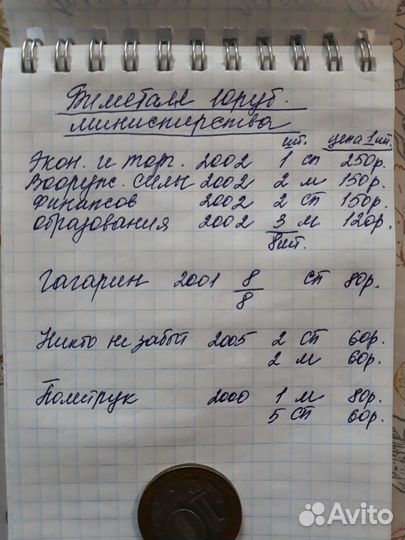 Биметалл 10руб.
министерства
шт. цена 1 шт.
Экон. и торг. 2002 1 СП 250р.
Вооруж. силы 2002 2 М 150р.
Финансов 2002 2 СП 150р.
образования 2002 3 М 120р.
8шт.
Гагарин 2001 8 СП 80р.
8
Никто не забыт 2005 2 СП 60р.
2 М 60р.
Политрук 2000 1 М 80р.
5 СП 60р.
10
Avito